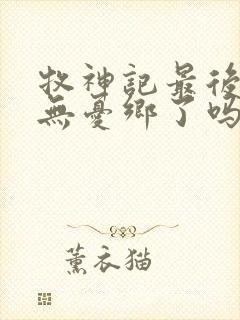 牧神記最後
無憂鄉了吗
薰衣猫